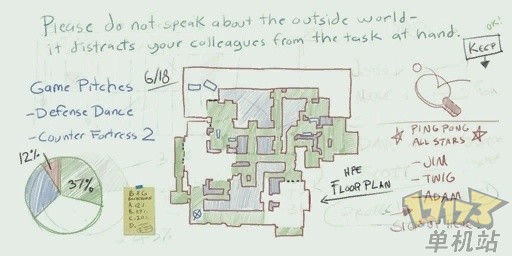 Please do not speak about the outside world-
it distracts your colleagues from the task at hand.
OK!
KEEP
Game Pitches
6/18
-Defense Dance
-Counter Fortress 2
12%
37%
HPE
FLOOR PLAN
PING PONG
ALL STARS
-JIM
-TWIG
-ADAM
17173
单机站